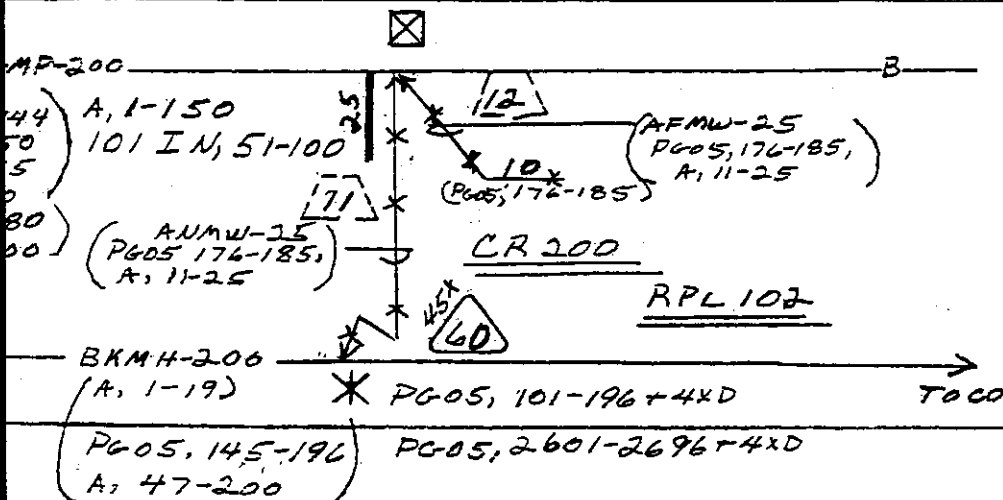 MP-200
B
44
50
5
0
80
00
A, 1-150
101 IN, 51-100
25
12
AFMW-25
PG05, 176-185,
A, 11-25
10
(PG05, 176-185)
71
ANMW-25
PG05 176-185,
A, 11-25
CR 200
RPL 102
45X
60
BKMH-200
(A, 1-19)
PG05, 101-196+4XD
TO CO
PG05, 145-196
A, 47-200
PG05, 2601-2696+4XD